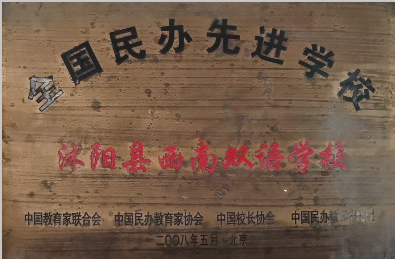 全国民办先进学校
沭阳县西南双语学校
中国教育家联合会 中国民办教育家协会 中国校长协会 中国民办
二〇〇八年五月·北京